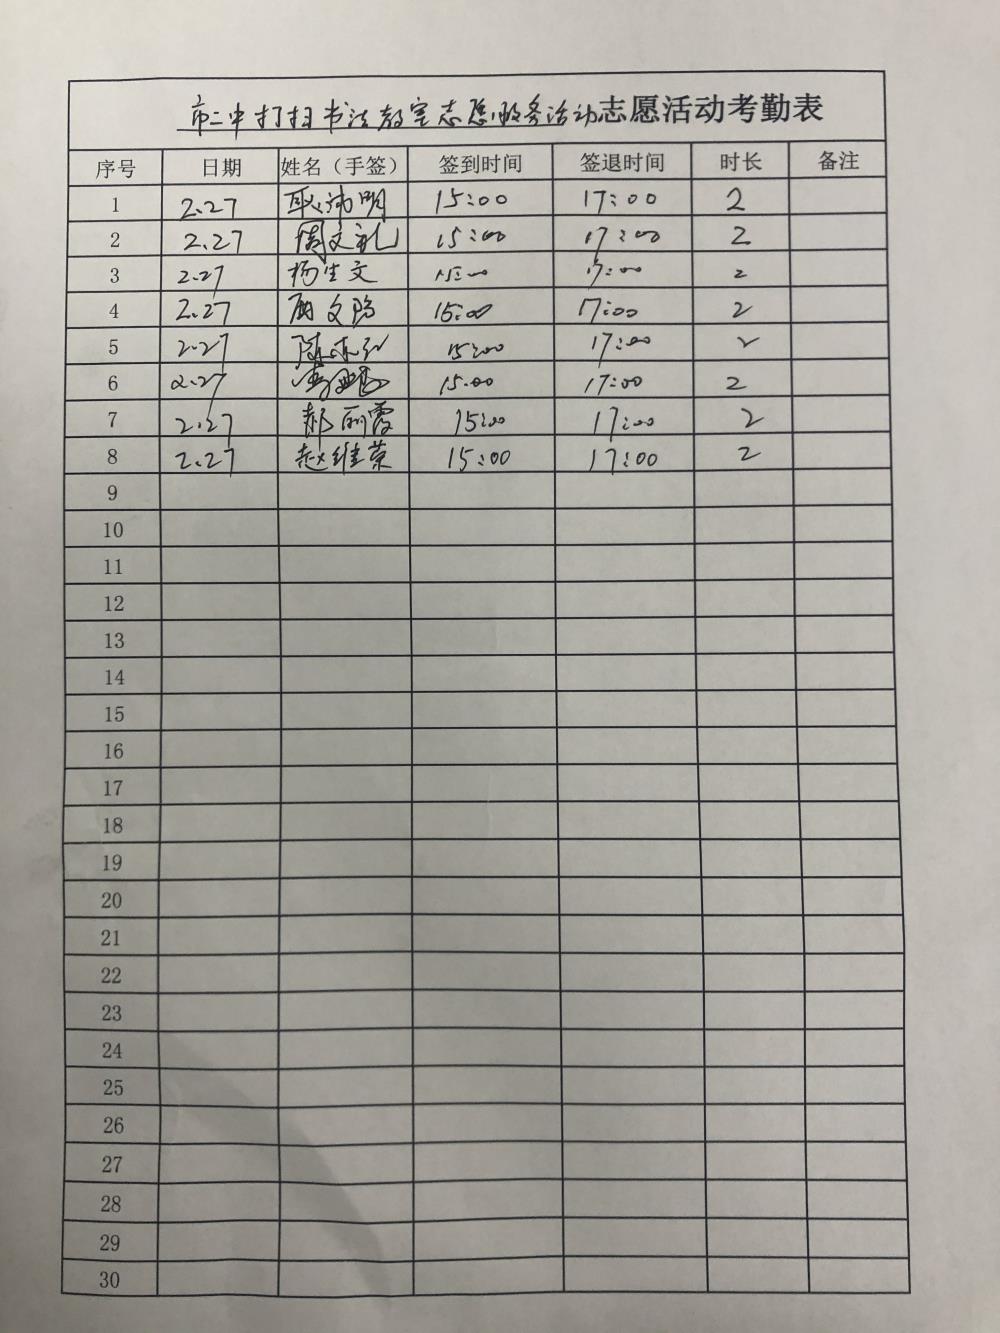 市二中打扫书法教室志愿服务活动志愿活动考勤表
序号 日期 姓名（手签） 签到时间 签退时间 时长 备注
1 2.27 耿沛明 15:00 17:00 2
2 2.27 周文礼 15:00 17:00 2
3 2.27 杨生文 15:00 17:00 2
4 2.27 15:00 17:00 2
5 2.27 15:00 17:00 2
6 2.27 15:00 17:00 2
7 2.27 郝丽霞 15:00 17:00 2
8 2.27 赵维荣 15:00 17:00 2
9
10
11
12
13
14
15
16
17
18
19
20
21
22
23
24
25
26
27
28
29
30